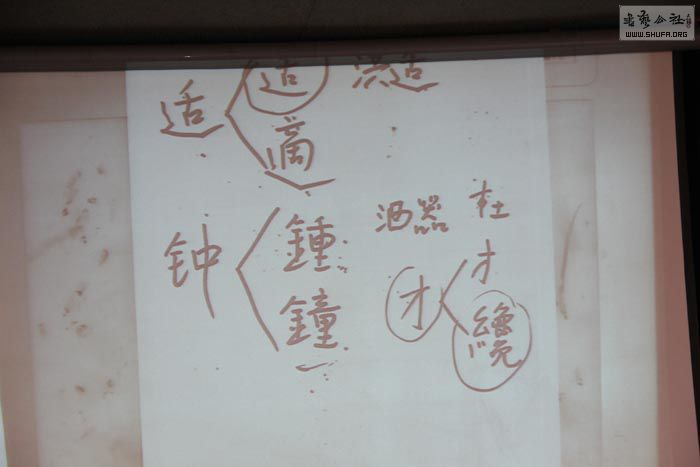 書藝公社
WWW.SHUFA.ORG
适 适 洪适
適
钟 鍾 酒器 杜
鐘 才 才
纔